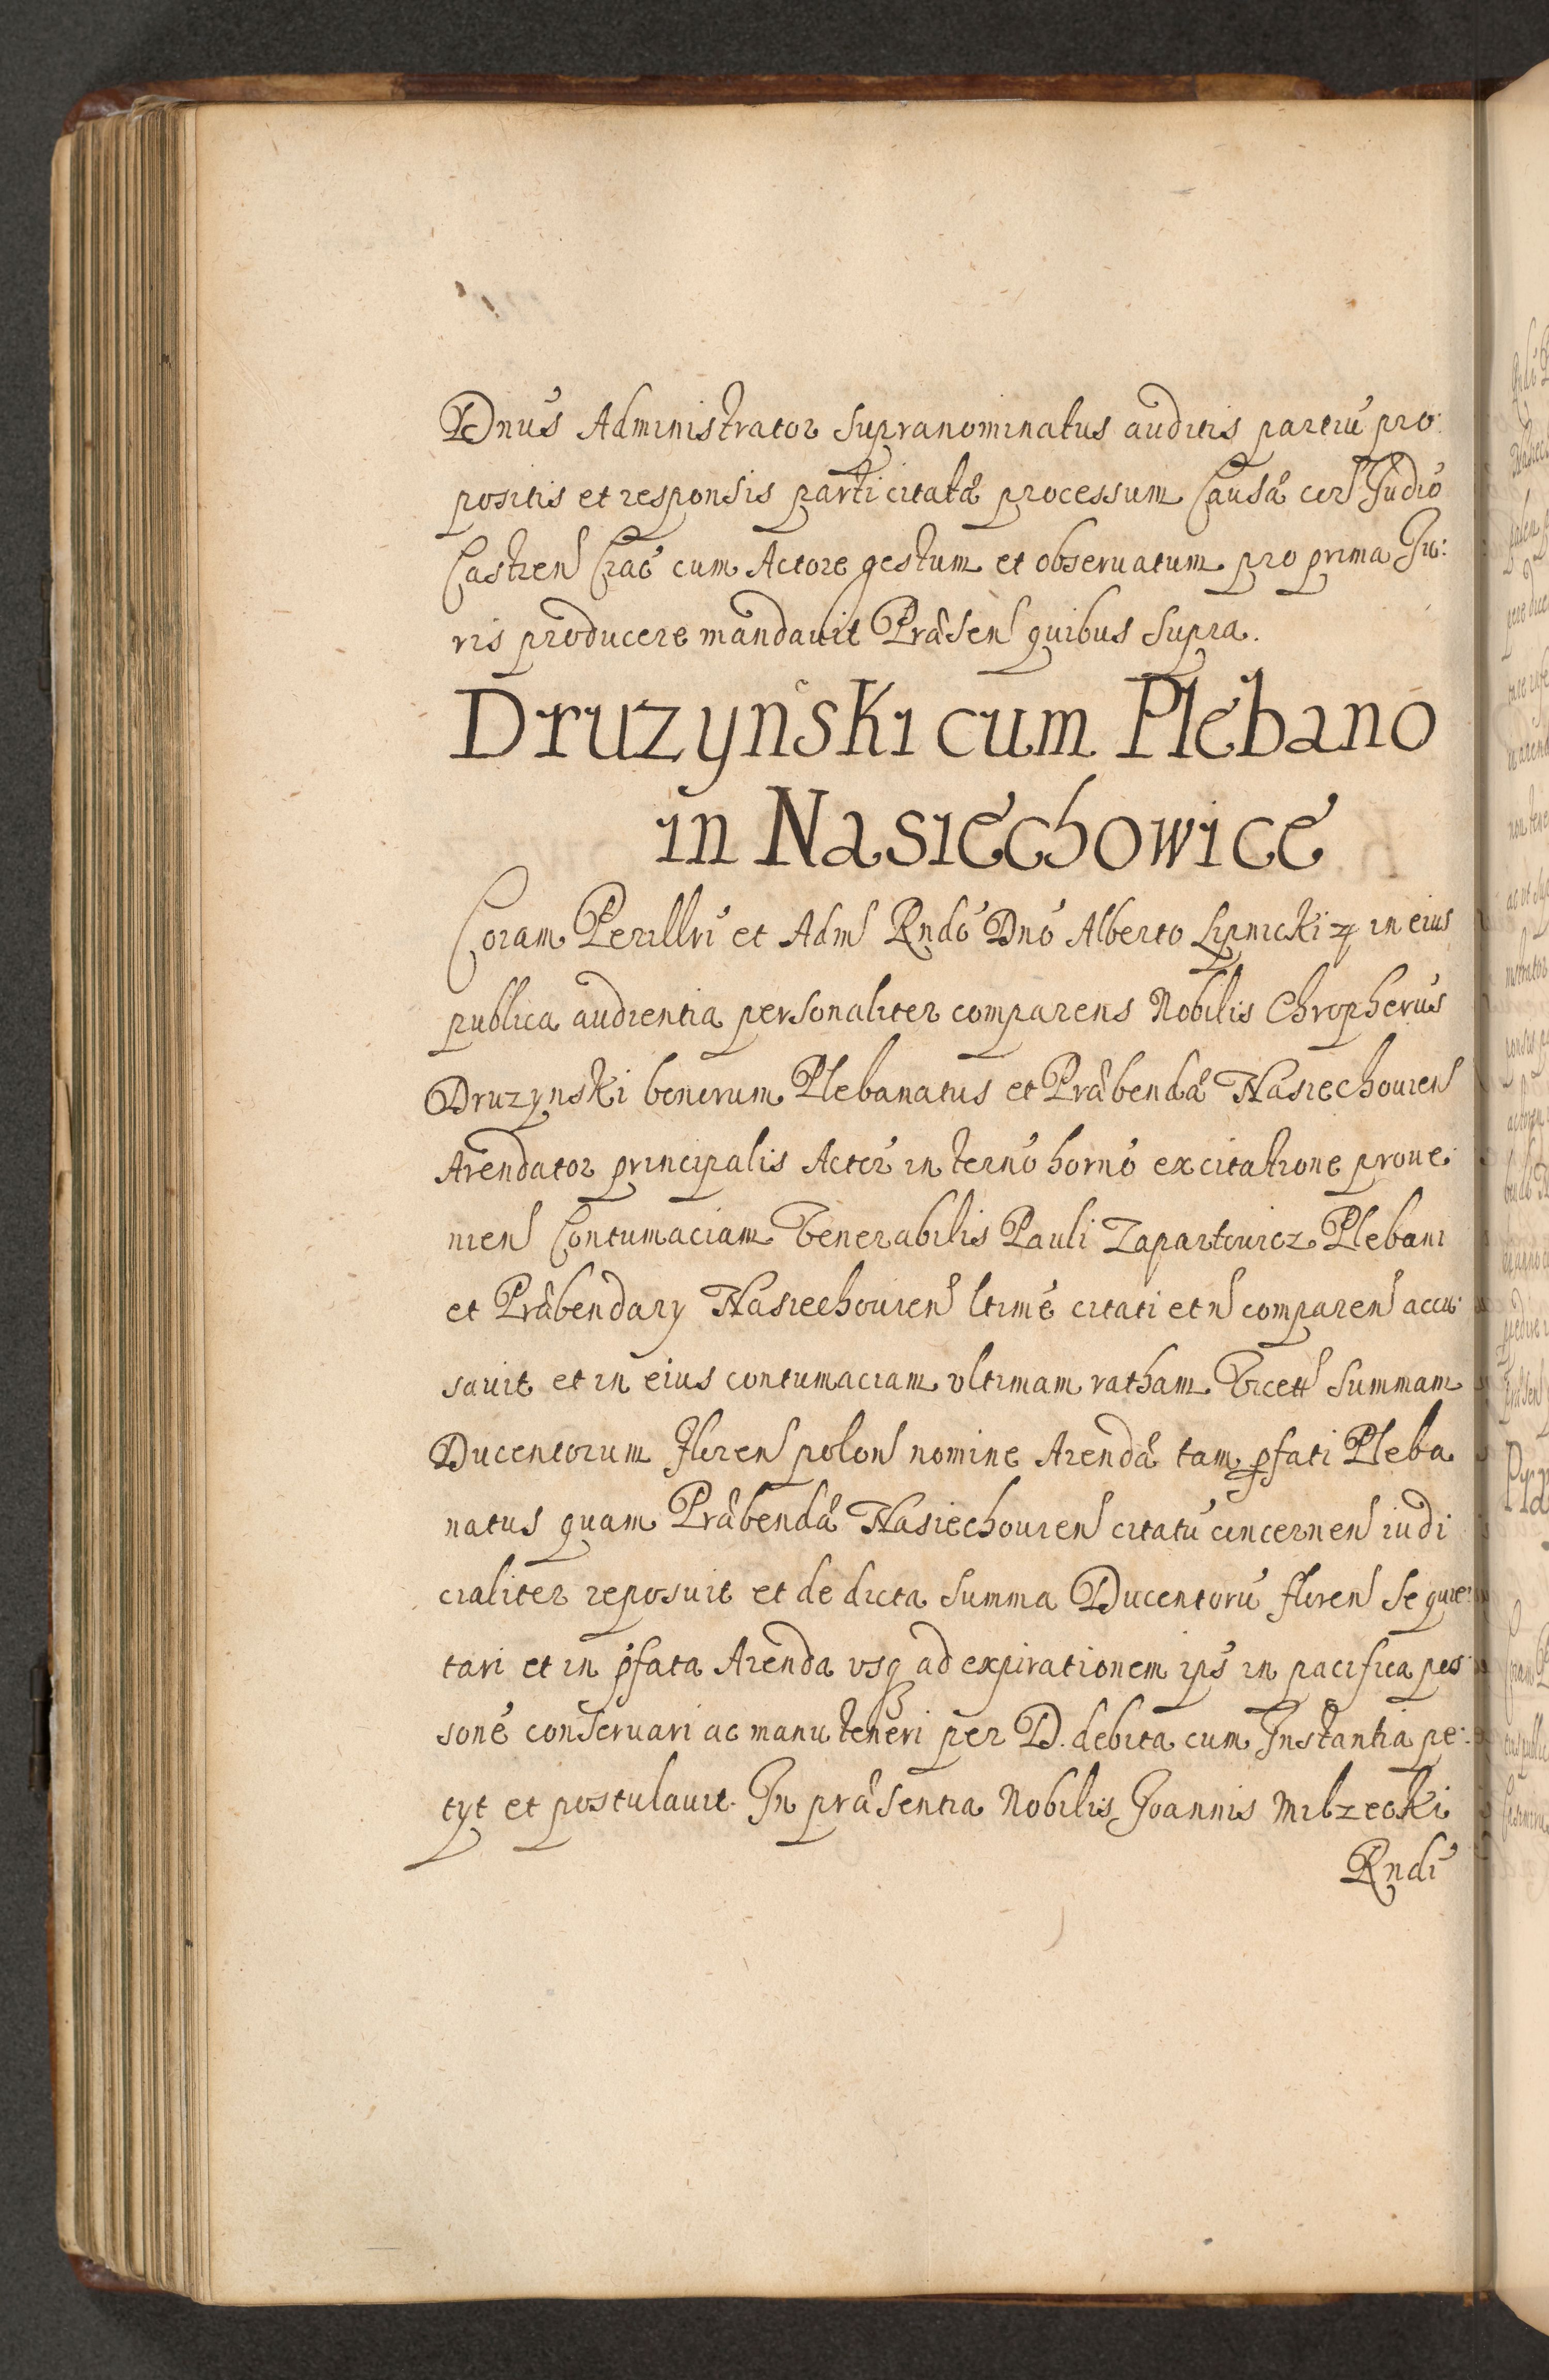 Dnus Administrator supranominatus auditis partiu pro:
positis et responsis parti citatæ processum Causæ cor Judio
Castren Crac cum Actore gestum et obseruatum pro prima Ju:
ris producere mandauit Præsen quibus supra.
Druzyński cum Plebano
in Nasiechowice
Coram Perillri et Adm Rndo Dno Alberto Lipnicki in eius
publica audientia personaliter comparens Nobilis Chropherus
Druzynski bonorum Plebanatus et Præbendæ Nasiechouien
Arendator principalis Actor in termo horno ex citatione proue:
nien Contumaciam Venerabilis Pauli Zapartowicz Plebani
et Præbendary Nasiechouien ltime citati et n comparen accu:
sauit et in eius contumaciam vltimam ratham summam
Ducentorum floren polon nomine Arendæ tam pfati Pleba
natus quam Præbendæ Nasiechouien citatu concernen iudi
cialiter reposuit et de dicta summa Ducentoru floren se quie:
tari et in pfata Arenda vsq ad expirationem ips in pacifica pos:
sone conseruari ac manuteneri per D. debita cum Instantia pe:
tyt et postulauit. In præsentia Nobilis Joannis Milzecki
Rndi